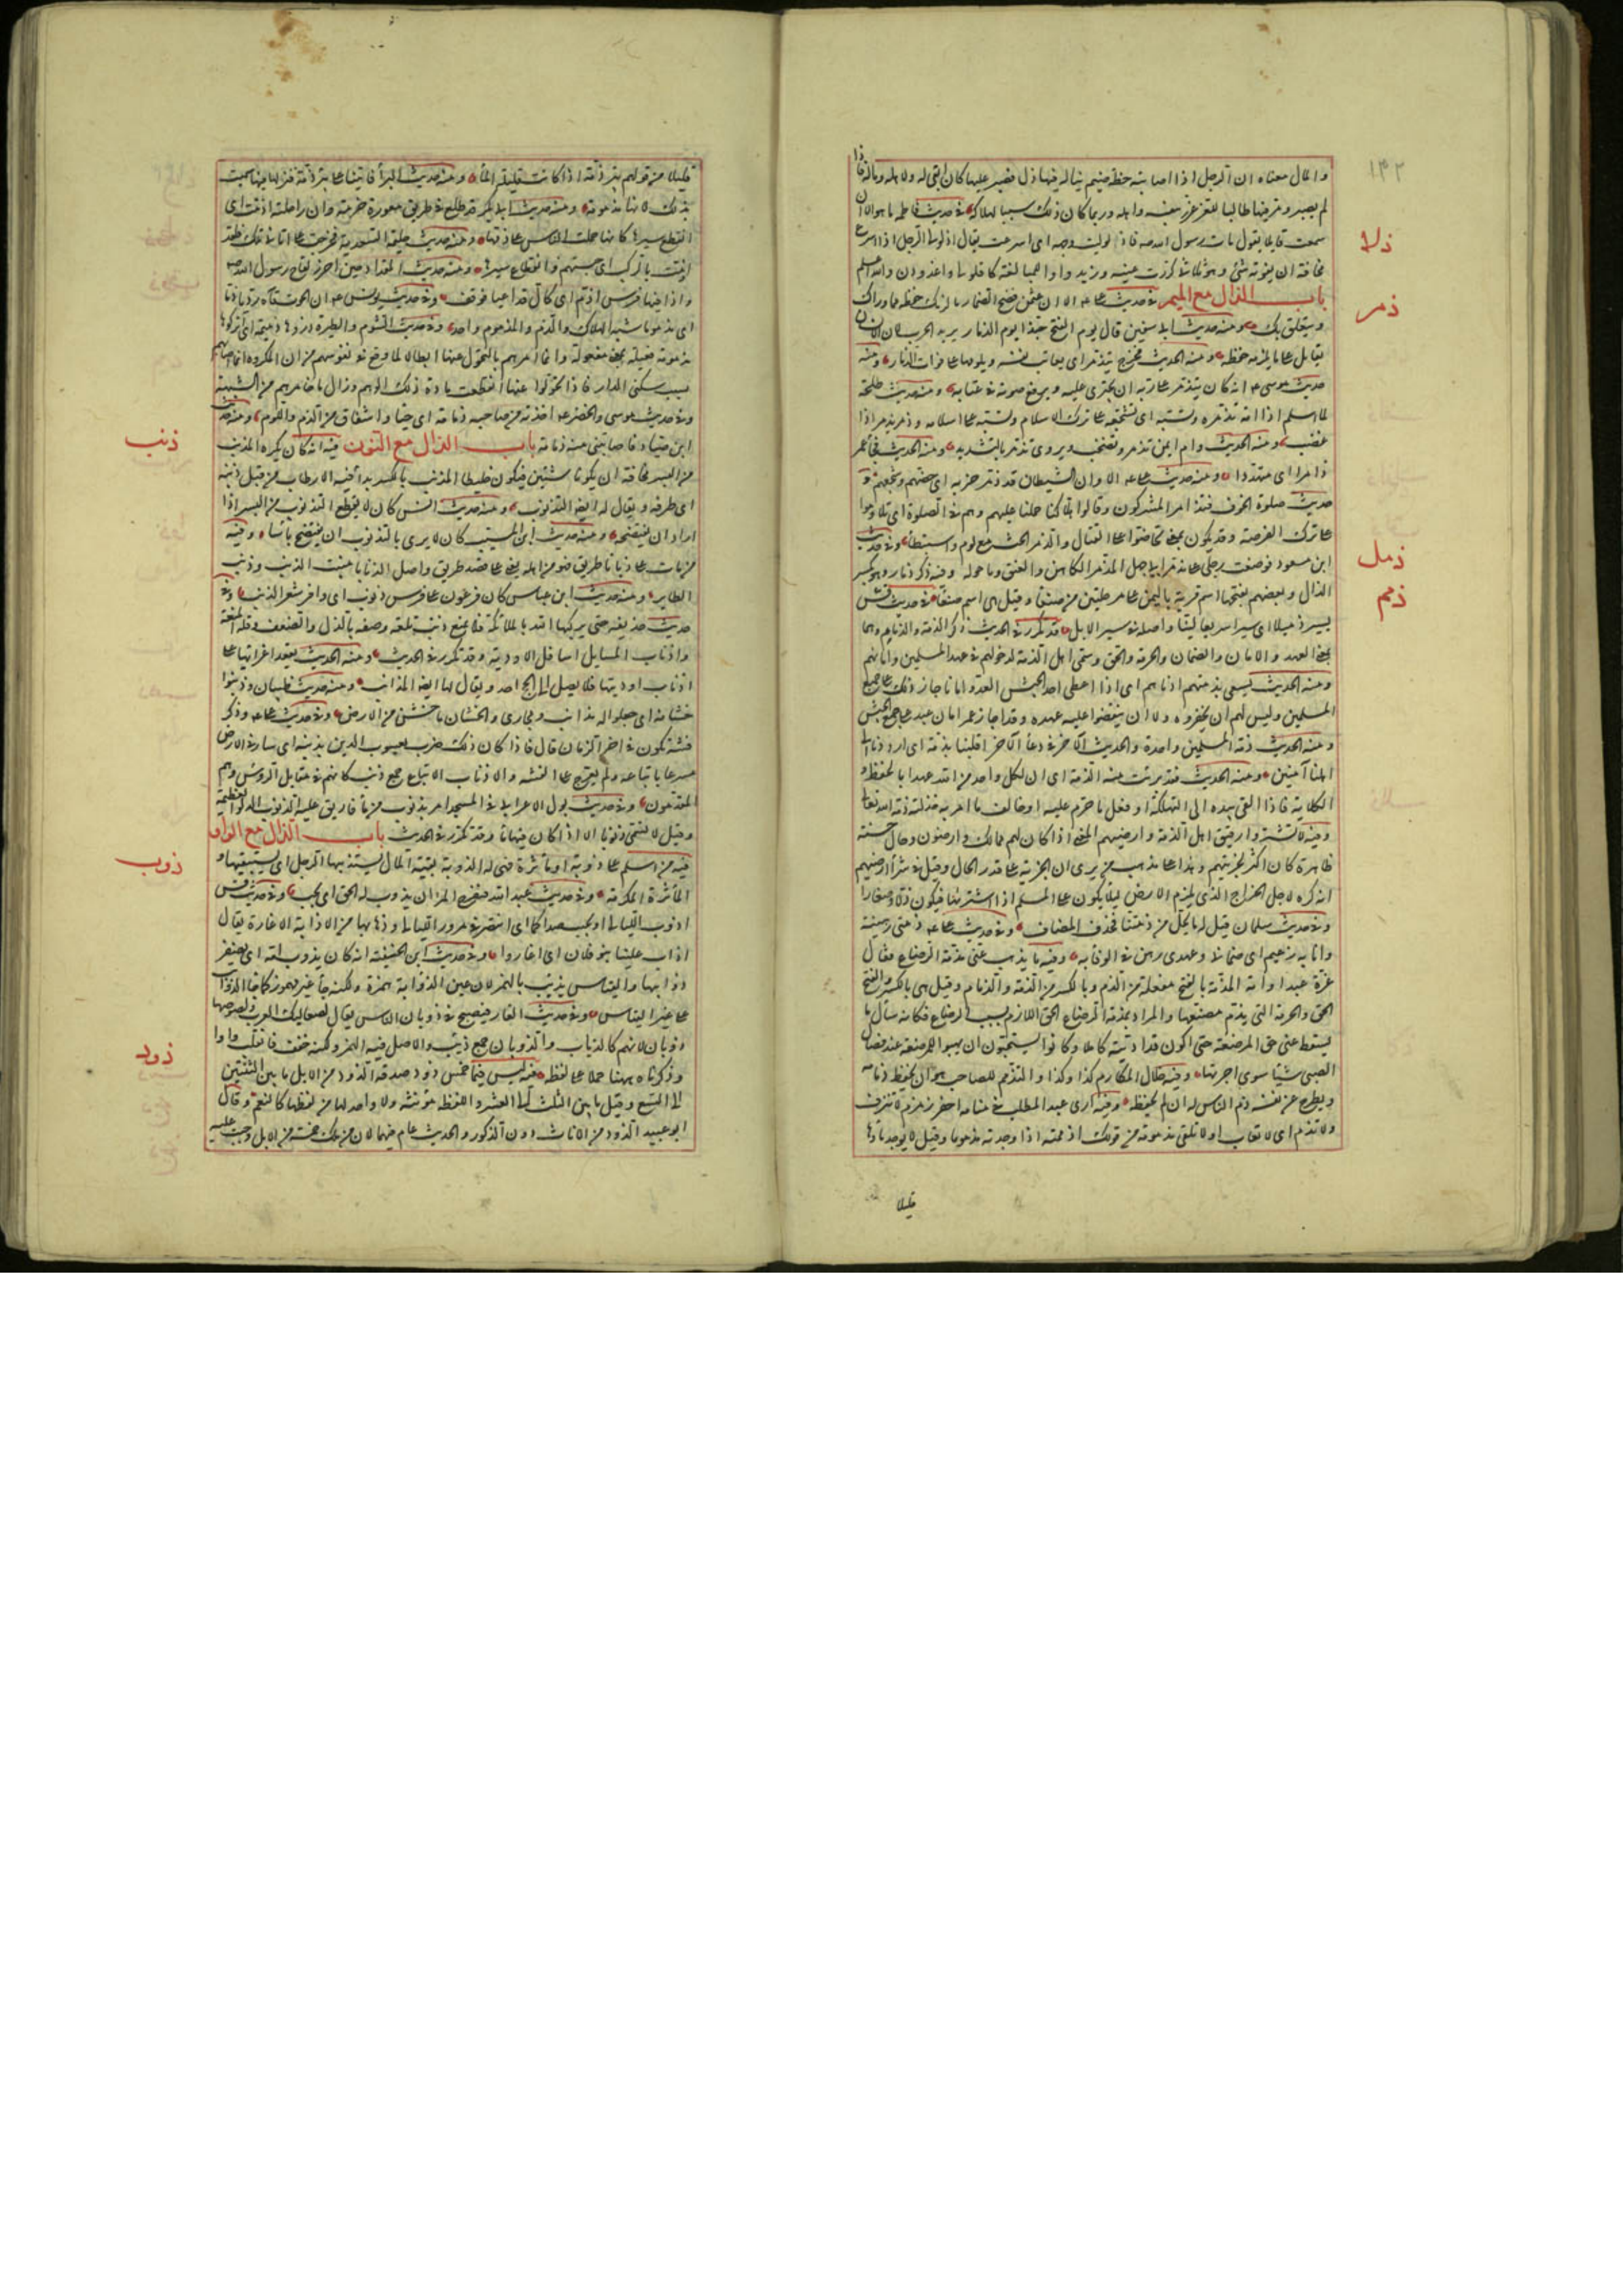 ١٤٢
والمال معناه ان الرجل اذا اصابته خطة ضيم يناله فيها ذل فصبر عليها كان ابقى له ولاهله وماله فاذا
لم يصبر ومر فيها طالبا للعز غرر بنفسه واهله وربما كان ذلك سببا لهلاكه في حديث فاطمة ما هو الا ان
سمعت قايلا يقول مات رسول الله صه فاذلوليت وجهه اى اسرعت يقال اذلولى الرجل اذا اسرع
مخافة ان يفوته شئ وهو ثلاثى كررت عينه وزيد واوا للمبالغة كاقلولى واغدودن والله اعلم
باب الذال مع الميم في حديث على عه الا ان عثمن فضح الذمار ما لزمك حفظه مما وراك
ويتعلق بك ومنه حديث ابى سفين قال يوم الفتح حبذا يوم الذمار يريد الحرب لان الانسان
يقاتل على ما يلزمه حفظه ومنه الحديث فخرج يتذمر اى يعاتب نفسه ويلومها على فوات الذمار ومنه
حديث موسى عه انه كان يتذمر على ربه اى يجترى عليه ويرفع صوته في عتابه ومنه حديث طلحة
لما اسلم اذا امه تذمره وتسبه اى تشجعه على ترك الاسلام وتسبه على اسلامه وذمر يذمر اذا
غضب ومنه الحديث وام ايمن تذمر وتصخب ويروى تذمر بالتشديد ومنه الحديث فجا عمر
ذامرا اى متهددا ومنه حديث على عه الا وان الشيطان قد ذمر حزبه اى حضهم وشجعهم و
حديث صلوة الخوف فتذامر المشركون وقالوا هلا كنا حملنا عليهم وهم في الصلوة اى تلاوموا
على ترك الفرصة وقد يكون بمعنى تحاضوا على القتال والذمر الحث مع لوم واستبطا وفي حديث
ابن مسعود فوضعت رجلى على مذمر ابى جهل المذمر الكاهل والعنق وما حوله وفيه ذكر ذمار وهو بكسر
الذال وبعضهم يفتحها اسم قرية باليمن على مرحلتين من صنعا وقيل هى اسم صنعا في حديث قس
يسير ذميلا اى سيرا سريعا لينا واصله في سير الابل قد تكرر في الحديث ذكر الذمة والذمام وهما
بمعنى العهد والامان والضمان والحرمة والحق وسمى اهل الذمة لدخولهم في عهد المسلمين وامانهم
ومنه الحديث يسعى بذمتهم ادناهم اى اذا اعطى احد الجيش العدو امانا جاز ذلك على جميع
المسلمين وليس لهم ان يخفروه ولا ان ينقضوا عليه عهده وقد اجاز عمر امان عبد على جميع الجيش
ومنه الحديث ذمة المسلمين واحدة والحديث الآخر في دعا المسافر اقلبنا بذمة اى ارددنا الى
اهلنا آمنين ومنه الحديث فقد برئت منه الذمة اى ان لكل واحد من الله عهدا بالحفظ و
الكلاية فاذا القى بيده الى التهلكة او فعل ما حرم عليه او خالف ما امر به خذلته ذمة الله تعالى
وفيه لا تشتروا رقيق اهل الذمة وارضيهم المعنى اذا كان لهم مماليك وارضون وحال حسنة
ظاهرة كان اكثر لجزيتهم وهذا على مذهب من يرى ان الجزية على قدر الحال وقيل في شرا ارضيهم
انه كره لاجل الخراج الذى يلزم الارض ليلا يكون على المسلم اذا اشتراها فيكون ذلا وصغارا
وفي حديث سلمان قيل له ما يحل من ذمتنا فحذف المضاف وفي حديث على عه ذمتى رهينة
وانا به زعيم اى ضمانى وعهدى رهن في الوفا به وفيه ما يذهب عنى مذمة الرضاع فقال
غرة عبد او امة المذمة بالفتح مفعلة من الذم وبالكسر من الذمة والذمام وقيل هى بالكسر والفتح
الحق والحرمة التى يذم مضيعها والمراد بمذمة الرضاع الحق اللازم بسبب الرضاع فكانه سال ما
يسقط عنى حق المرضعة حتى اكون قد اديته كاملا وكانوا يستحبون ان يهبوا للمرضعة عند فصال
الصبى شيئا سوى اجرتها وفيه خلال المكارم كذا وكذا والتذمم للصاحب هو ان يحفظ ذمامه
ويطرح عن نفسه ذم الناس له ان لم يحفظه وفيه ارى عبد المطلب في منامه احفر زمزم لا تنزف
ولا تذم اى لا تعاب او لا تلفى مذمومة من قولك اذممته اذا وجدته مذموما وقيل لا يوجد ماؤها
قليلا
ذلا
ذمر
ذمل
ذمم
قليلا من قولهم بئر ذمة اذا كانت قليلة الماء ومنه حديث البراء فاتينا على بئر ذمة فنزلنا فيها سميت
بذلك لانها مذمومة ومنه حديث ابى بكر قد طلع في طريق معورة حزنة وان راحلته اذمت اى
انقطع سيرها كانها حملت الناس على ذمها ومنه حديث حليمة السعدية فخرجت على اتانى تلك فلقد
اذمت بالركب اى حبستهم لانقطاع سيرها ومنه حديث المقداد حين احرز لقاح رسول الله صه
واذا فيها فرس اذم اى كال قد اعيا فوقف وفي حديث يونس عه ان الحوت قاه رذيا ذما
اى مذموما شبه الهلاك والذم والمذموم واحد وفي حديث الشوم والطيرة ذروها ذميمة اى اتركوها
مذمومة فعيلة بمعنى مفعولة وانما امرهم بالتحول عنها ابطالا لما وقع في نفوسهم من ان المكروه انما اصابهم
بسبب سكنى الدار فاذا تحولوا عنها انقطعت مادة ذلك الوهم وزال ما خامرهم من الشبهة
وفي حديث موسى والخضر عه اخذته من صاحبه ذمامة اى حيا واشفاق من الذم واللوم ومنه حديث
ابن صياد فاصابتنى منه ذمامة باب الذال مع النون فيه انه كان يكره المذنب
من البسر مخافة ان يكونا شيئين فيكون خليطا المذنب بالكسر بدا فيه الارطاب من قبل ذنبه
اى طرفه ويقال له ايضا التذنوب ومنه حديث انس كان لا يقطع التذنوب من البسر اذا
اراد ان يفتضخه ومنه حديث ابن المسيب كان لا يرى بالتذنوب ان يفتضخ باسا وفيه
من مات على ذنابى طريق فهو من اهله يعنى على قصد طريق واصل الذنابى منبت الذنب وذنب
الطاير ومنه حديث ابن عباس كان فرعون على فرس ذنوب اى وافر شعر الذنب وفي
حديث حذيفة حتى يركبها الله بالملائكة فلا يمنع ذنب تلعة وصفه بالذل والضعف وقلة المنعة
واذناب المسايل اسافل الاودية وقد تكرر في الحديث ومنه الحديث يقعد اعرابها على
اذناب اوديتها فلا يصل الى الحج احد ويقال لها ايضا المذانب ومنه حديث ظبيان وذنبوا
خشانه اى جعلوا له مذانب ومجارى والخشان ما خشن من الارض وفي حديث على عه وذكر
فتنة تكون في اخر الزمان قال فاذا كان ذلك ضرب يعسوب الدين بذنبه اى سار في الارض
مسرعا باتباعه ولم يعرج على الفتنة والاذناب الاتباع جمع ذنب كانهم في مقابل الروس وهم
المقدمون وفي حديث بول الاعرابى في المسجد امر بذنوب من ما فاريق عليه الذنوب الدلو العظيمة
وقيل لا تسمى ذنوبا الا اذا كان فيها ما وقد تكرر في الحديث باب الذال مع الواو
فيه من اسلم على ذوبة او ماثرة فهى له الذوبة بقية المال يستذيبها الرجل اى يستبقيها و
الماثرة المكرمة وفي حديث عبد الله فيفرح المرا ان يذوب له الحق اى يجب وفي حديث قس
اذوب الليالى او يجيب صداكما اى انتظر في مرور الليالى وذهابها من الاذابة الاغارة يقال
اذاب علينا بنو فلان اى اغاروا وفي حديث ابن الحنفية انه كان يذوب امه اى يضفر
ذوابتها والقياس يذئب بالهمز لان عين الذوابة همزة ولكنه جا غير مهموز كما جا الذوايب
على غير القياس وفي حديث الغار فيصبح في ذوبان الناس يقال لصعاليك العرب ولصوصها
ذوبان لانهم كالذياب والذوبان جمع ذيب والاصل فيه الهمز ولكنه خفف فانقلبت واوا
وذكرناه ههنا حملا على لفظه فيه ليس فيما خمس ذود صدقة الذود من الابل ما بين الثنتين
الى التسع وقيل ما بين الثلث الى العشر واللفظة مونثة ولا واحد لها من لفظها كالنعم وقال
ابو عبيد الذود من الاناث دون الذكور والحديث عام فيهما لان من ملك خمسة من الابل وجبت عليه
ذنب
ذوب
ذود